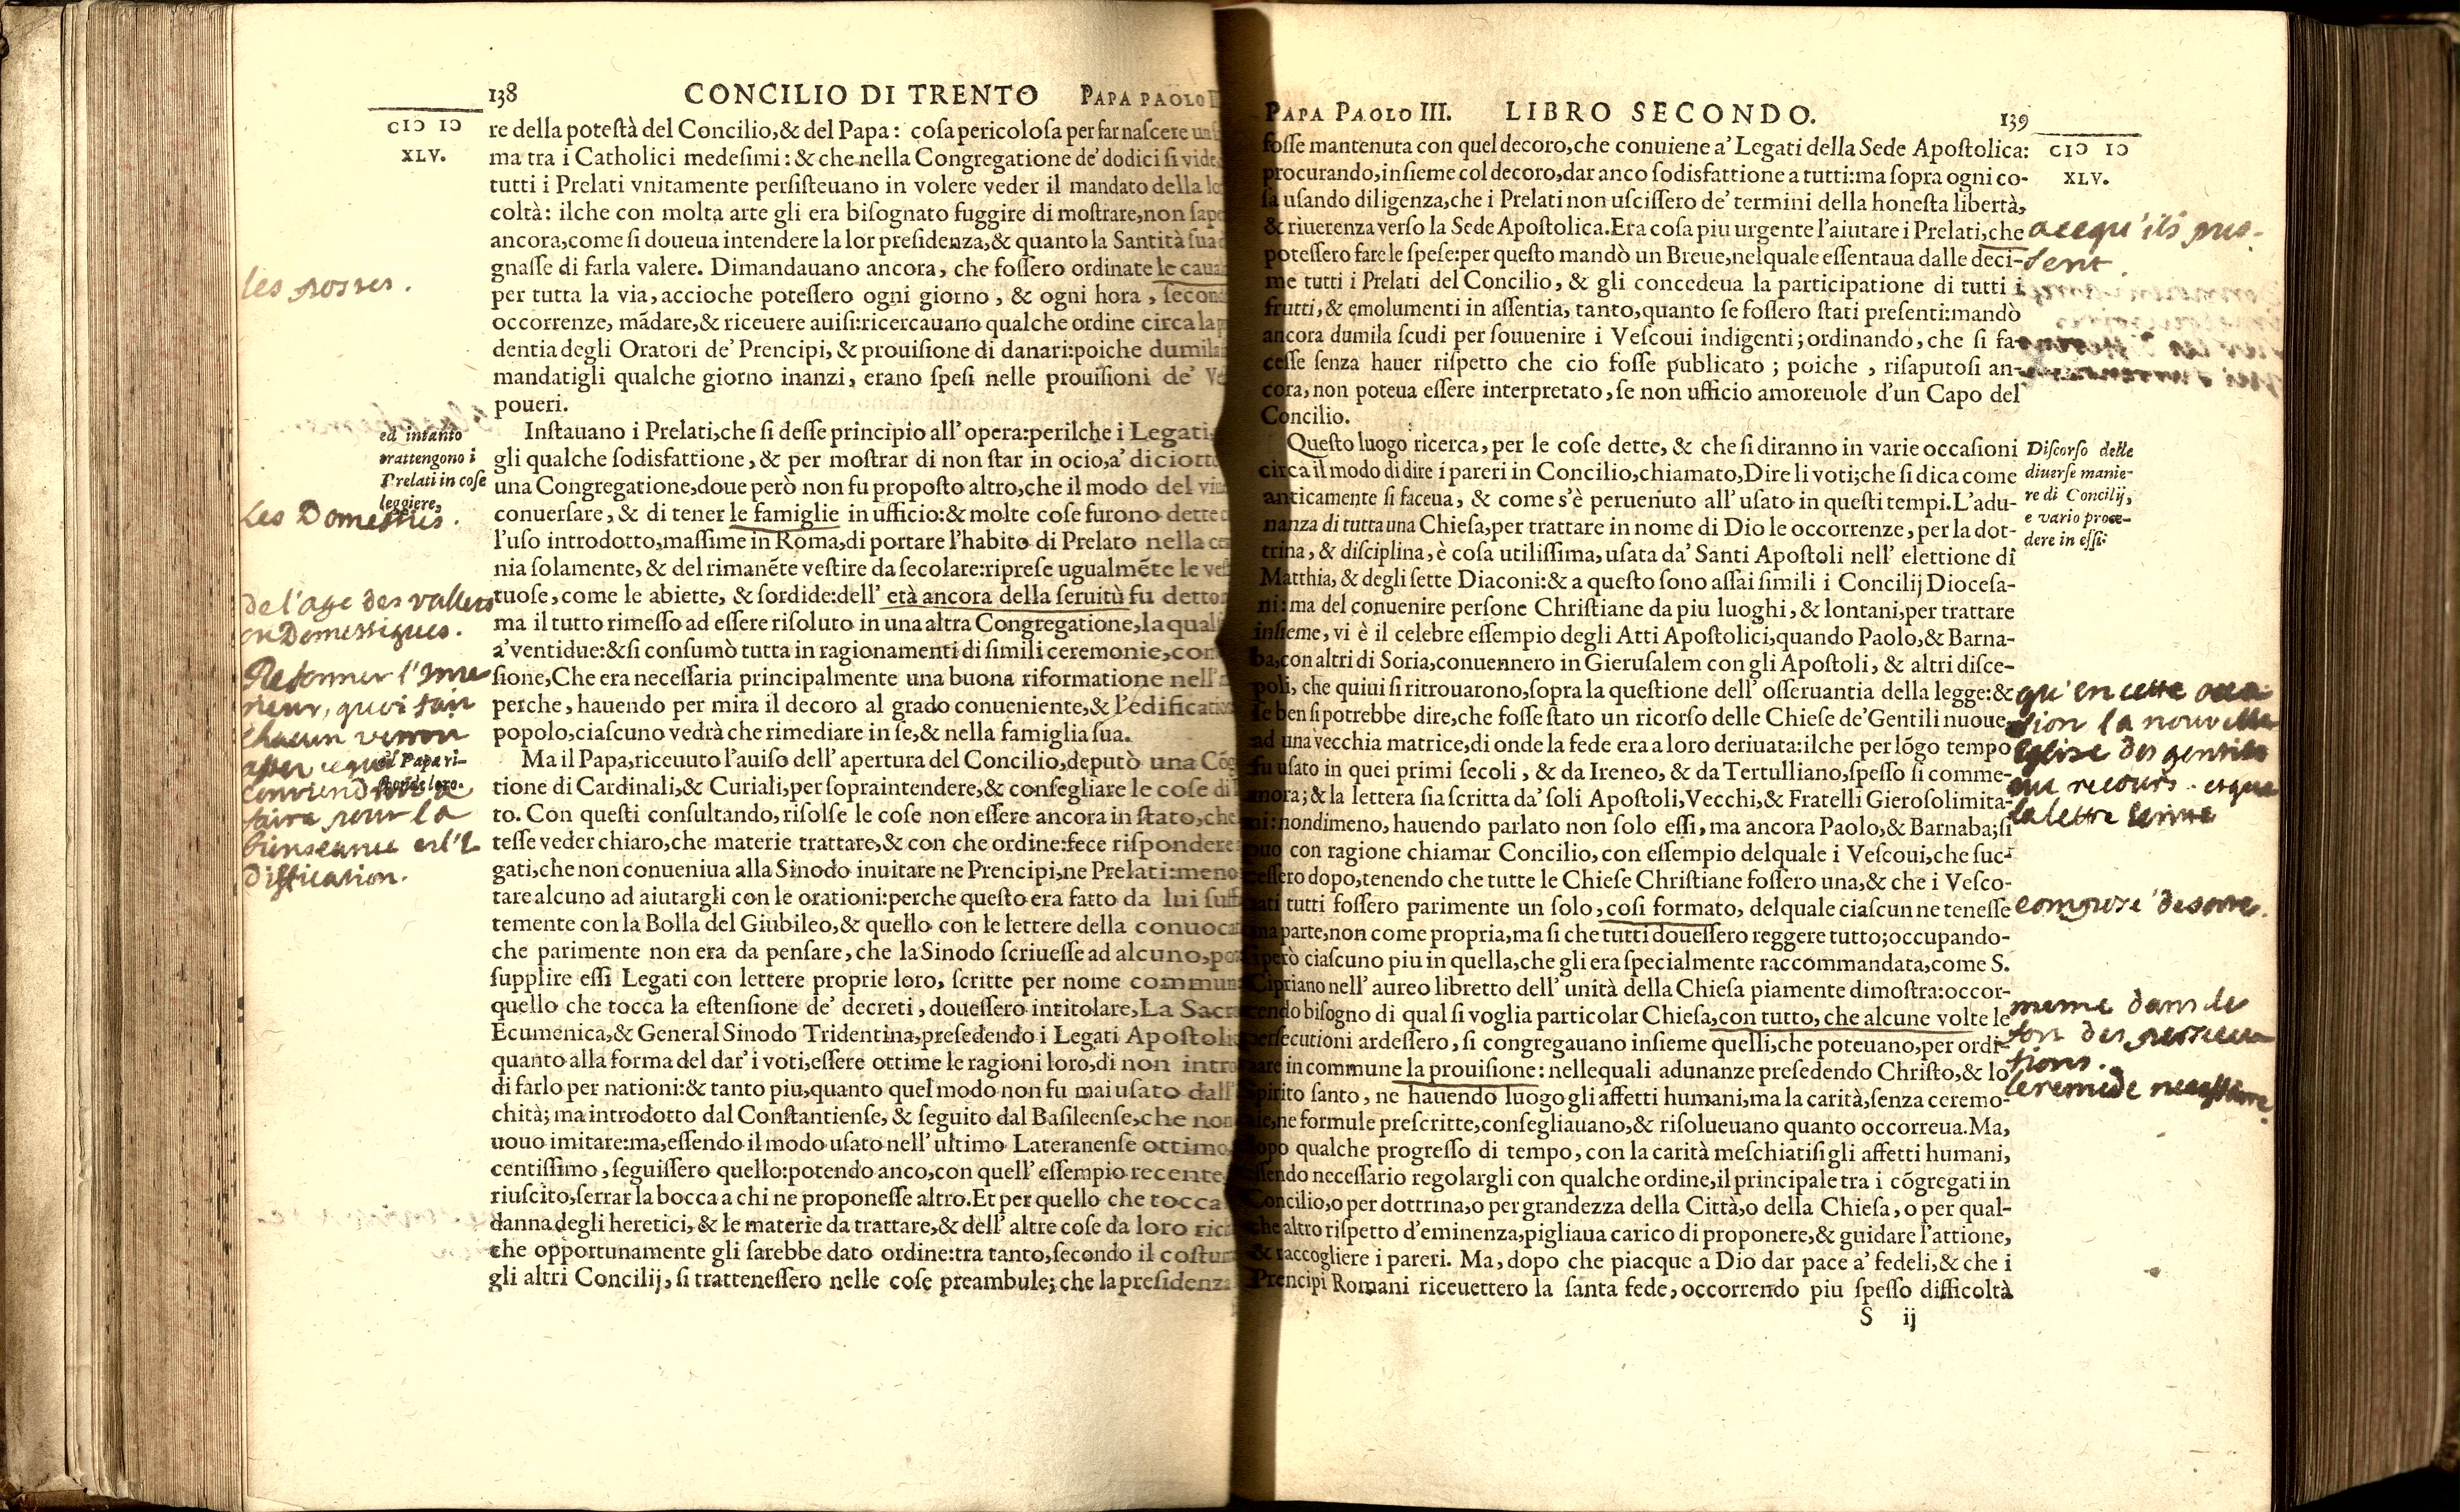 138 CONCILIO DI TRENTO PAPA PAOLO
CIↃ IↃ
XLV.
re della poteſtà del Concilio,& del Papa: coſa pericoloſa per far naſcere un
ma tra i Catholici medeſimi: & che nella Congregatione de' dodici ſi vide
tutti i Prelati vnitamente perſiſteuano in volere veder il mandato della
coltà: ilche con molta arte gli era biſognato fuggire di moſtrare,non
ancora,come ſi doueua intendere la lor preſidenza,& quanto la Santità ſua
gnaſſe di farla valere. Dimandauano ancora, che foſſero ordinate le
les postes.
per tutta la via, accioche poteſſero ogni giorno, & ogni hora,
occorrenze, mãdare,& riceuere auiſi:ricercauano qualche ordine circa la
dentia degli Oratori de' Prencipi, & prouiſione di danari:poiche dumila
mandatigli qualche giorno inanzi, erano ſpeſi nelle prouiſioni de'
poueri.
ed intanto
trattengono i
Prelati in coſe
leggiere,
Inſtauano i Prelati,che ſi deſſe principio all' opera:perilche i Legati,
gli qualche ſodisfattione, & per moſtrar di non ſtar in ocio,a' diciotto
una Congregatione,doue però non fu propoſto altro,che il modo del
conuerſare, & di tener le famiglie in ufficio:& molte coſe furono dette
Les Domestics.
l'uſo introdotto,maſſime in Roma,di portare l'habito di Prelato nella
nia ſolamente, & del rimanẽte veſtire da ſecolare:ripreſe ugualmẽte le
tuoſe,come le abiette, & ſordide:dell' età ancora della ſeruitù fu detto
de l'age des vallets
ou Domestiques.
ma il tutto rimeſſo ad eſſere riſoluto in una altra Congregatione,la
a' ventidue:& ſi conſumò tutta in ragionamenti di ſimili ceremonie,
ſione,Che era neceſſaria principalmente una buona riformatione
perche, hauendo per mira il decoro al grado conueniente,&
popolo,ciaſcuno vedrà che rimediare in ſe,& nella famiglia ſua.
Reformer
chacun
il Papa ri-
ſponde loro.
faire pour la
bienseance
Ma il Papa,riceuuto l'auiſo dell' apertura del Concilio,deputò una
tione di Cardinali,& Curiali,per ſopraintendere,& conſegliare le coſe
to. Con queſti conſultando, riſolſe le coſe non eſſere ancora in ſtato,che
teſſe veder chiaro,che materie trattare,& con che ordine:fece riſpondere
gati,che non conueniua alla Sinodo inuitare ne Prencipi,ne Prelati:meno
tare alcuno ad aiutargli con le orationi:perche queſto era fatto da lui
temente con la Bolla del Giubileo,& quello con le lettere della
che parimente non era da penſare, che la Sinodo ſcriueſſe ad alcuno,
ſupplire eſſi Legati con lettere proprie loro, ſcritte per nome
quello che tocca la eſtenſione de' decreti, doueſſero intitolare, La
Ecumenica,& General Sinodo Tridentina,preſedendo i Legati
quanto alla forma del dar' i voti,eſſere ottime le ragioni loro,di non
di farlo per nationi:& tanto piu,quanto quel modo non fu mai uſato dall'
chità; ma introdotto dal Conſtantienſe, & ſeguito dal Baſileenſe,che
uouo imitare:ma,eſſendo il modo uſato nell' ultimo Lateranenſe ottimo,
centiſſimo, ſeguiſſero quello:potendo anco,con quell' eſſempio recente,
riuſcito,ſerrar la bocca a chi ne proponeſſe altro.Et per quello che tocca
danna degli heretici, & le materie da trattare,& dell' altre coſe da loro
che opportunamente gli ſarebbe dato ordine:tra tanto,ſecondo il
gli altri Concilij, ſi tratteneſſero nelle coſe preambule; che la
PAPA PAOLO III. LIBRO SECONDO. 139
CIↃ IↃ
XLV.
foſſe mantenuta con quel decoro,che conuiene a' Legati della Sede Apoſtolica:
procurando,inſieme col decoro,dar anco ſodisfattione a tutti:ma ſopra ogni co-
ſa uſando diligenza,che i Prelati non uſciſſero de' termini della honeſta libertà,
& riuerenza verſo la Sede Apoſtolica.Era coſa piu urgente l'aiutare i Prelati,che
poteſſero fare le ſpeſe:per queſto mandò un Breue,nelquale eſſentaua dalle deci-
me tutti i Prelati del Concilio, & gli concedeua la participatione di tutti i
frutti, & emolumenti in aſſentia, tanto,quanto ſe foſſero ſtati preſenti:mandò
ancora dumila ſcudi per ſouuenire i Veſcoui indigenti; ordinando, che ſi fa-
ceſſe ſenza hauer riſpetto che cio foſſe publicato; poiche, riſaputoſi an-
cora, non poteua eſſere interpretato, ſe non ufficio amoreuole d'un Capo del
Concilio.
Diſcorſo delle
diuerſe manie-
re di Concilij,
e vario proce-
dere in eſſi:
Queſto luogo ricerca, per le coſe dette, & che ſi diranno in varie occaſioni
circa il modo di dire i pareri in Concilio,chiamato,Dire li voti;che ſi dica come
anticamente ſi faceua, & come s'è peruenuto all' uſato in queſti tempi.L'adu-
nanza di tutta una Chieſa,per trattare in nome di Dio le occorrenze, per la dot-
trina, & diſciplina, è coſa utiliſſima, uſata da' Santi Apoſtoli nell' elettione di
Matthia, & degli ſette Diaconi:& a queſto ſono aſſai ſimili i Concilij Dioceſa-
ni: ma del conuenire perſone Chriſtiane da piu luoghi, & lontani,per trattare
inſieme, vi è il celebre eſſempio degli Atti Apoſtolici,quando Paolo,& Barna-
ba,con altri di Soria,conuennero in Gieruſalem con gli Apoſtoli, & altri diſce-
poli, che quiui ſi ritrouarono,ſopra la queſtione dell' oſſeruantia della legge:&
ſe ben ſi potrebbe dire,che foſſe ſtato un ricorſo delle Chieſe de' Gentili nuoue
ad una vecchia matrice,di onde la fede era a loro deriuata:ilche per lõgo tempo
fu uſato in quei primi ſecoli, & da Ireneo, & da Tertulliano,ſpeſſo ſi comme-
mora; & la lettera ſia ſcritta da' ſoli Apoſtoli,Vecchi,& Fratelli Gieroſolimita-
ni: nondimeno, hauendo parlato non ſolo eſſi, ma ancora Paolo,& Barnaba;ſi
puo con ragione chiamar Concilio, con eſſempio delquale i Veſcoui,che ſuc-
ceſſero dopo,tenendo che tutte le Chieſe Chriſtiane foſſero una,& che i Veſco-
uati tutti foſſero parimente un ſolo, coſi formato, delquale ciaſcun ne teneſſe
una parte,non come propria,ma ſi che tutti doueſſero reggere tutto;occupando-
ſi però ciaſcuno piu in quella,che gli era ſpecialmente raccommandata,come S.
Cipriano nell' aureo libretto dell' unità della Chieſa piamente dimoſtra:occor-
rendo biſogno di qual ſi voglia particolar Chieſa,con tutto, che alcune volte le
perſecutioni ardeſſero, ſi congregauano inſieme quelli,che poteuano,per ordi-
nare in commune la prouiſione: nellequali adunanze preſedendo Chriſto,& lo
Spirito ſanto, ne hauendo luogo gli affetti humani,ma la carità,ſenza ceremo-
nie,ne formule preſcritte,conſegliauano,& riſolueuano quanto occorreua.Ma,
dopo qualche progreſſo di tempo, con la carità meſchiatiſi gli affetti humani,
eſſendo neceſſario regolargli con qualche ordine,il principale tra i cõgregati in
Concilio,o per dottrina,o per grandezza della Città,o della Chieſa, o per qual-
che altro riſpetto d'eminenza,pigliaua carico di proponere,& guidare l'attione,
& raccogliere i pareri. Ma, dopo che piacque a Dio dar pace a' fedeli,& che i
Prencipi Romani riceuettero la ſanta fede, occorrendo piu ſpeſſo difficoltà
S ij
qu'en cette
la nouvelle
Eglise des gentils
la lettre
mesme dans le
le remede necessaire